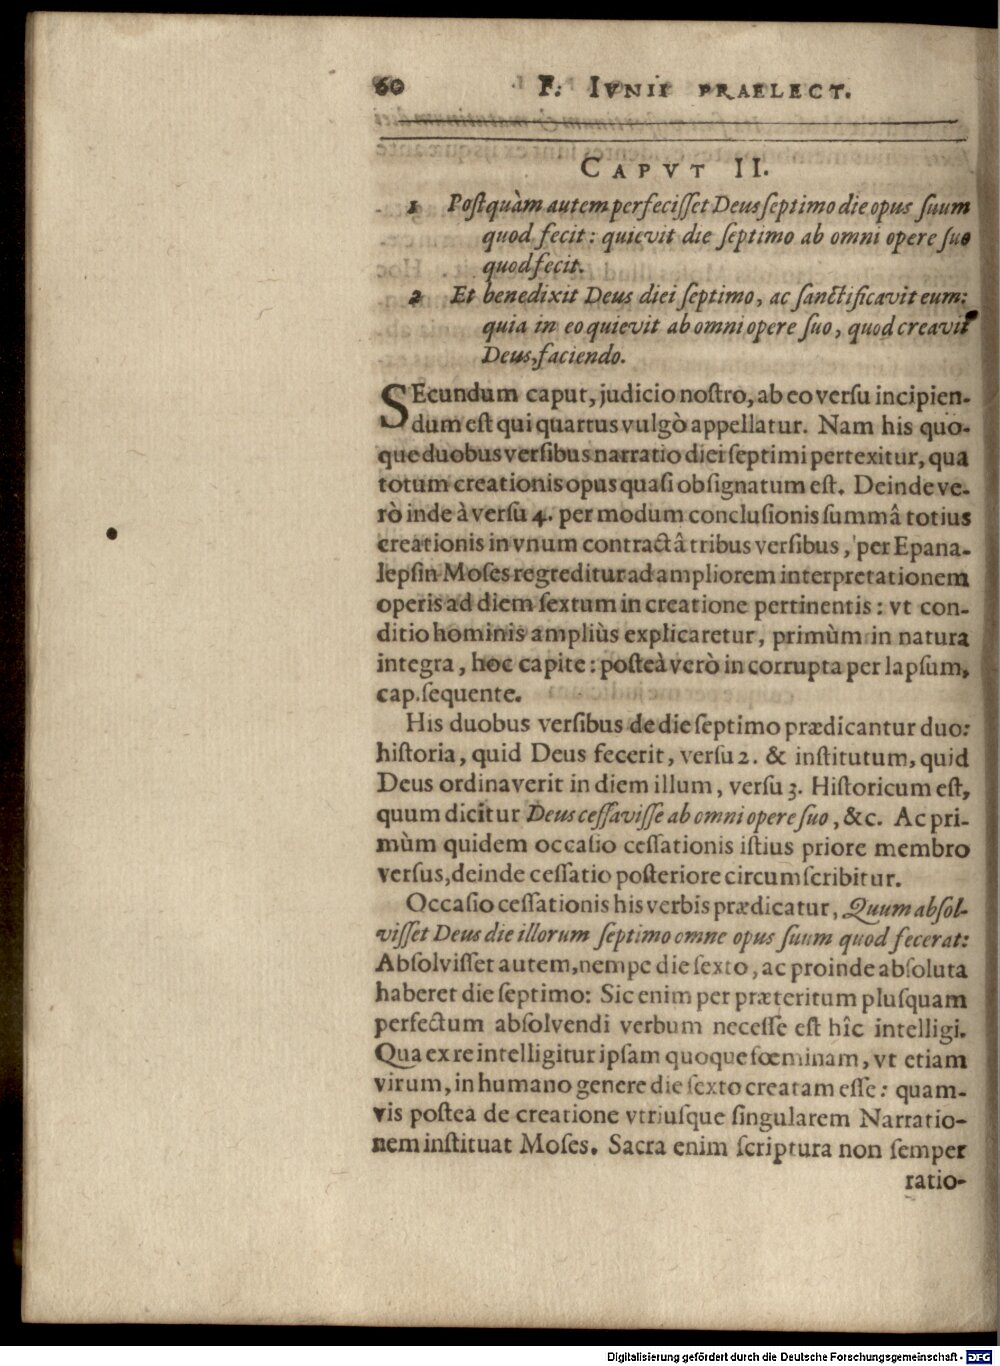 60 F. IVNII PRAELECT.
CAPVT II.
1 Poſtquàm autem perfeciſſet Deus ſeptimo die opus ſuum
quod fecit: quievit die ſeptimo ab omni opere ſuo
quod fecit.
2 Et benedixit Deus diei ſeptimo, ac ſanctificavit eum:
quia in eo quievit ab omni opere ſuo, quod creavit
Deus, faciendo.
SEcundum caput, judicio noſtro, ab eo verſu incipien-
dum eſt qui quartus vulgò appellatur. Nam his quo-
que duobus verſibus narratio diei ſeptimi pertexitur, qua
totum creationis opus quaſi obſignatum eſt. Deinde ve-
rò inde à verſu 4. per modum concluſionis ſummâ totius
creationis in vnum contractâ tribus verſibus, per Epana-
lepſin Moſes regreditur ad ampliorem interpretationem
operis ad diem ſextum in creatione pertinentis: vt con-
ditio hominis ampliùs explicaretur, primùm in natura
integra, hoc capite: poſteà verò in corrupta per lapſum,
cap. ſequente.
His duobus verſibus de die ſeptimo prædicantur duo:
hiſtoria, quid Deus fecerit, verſu 2. & inſtitutum, quid
Deus ordinaverit in diem illum, verſu 3. Hiſtoricum eſt,
quum dicitur Deus ceſſaviſſe ab omni opere ſuo, &c. Ac pri-
mùm quidem occaſio ceſſationis iſtius priore membro
verſus, deinde ceſſatio poſteriore circumſcribitur.
Occaſio ceſſationis his verbis prædicatur, Quum abſol-
viſſet Deus die illorum ſeptimo omne opus ſuum quod fecerat:
Abſolviſſet autem, nempe die ſexto, ac proinde abſoluta
haberet die ſeptimo: Sic enim per præteritum pluſquam
perfectum abſolvendi verbum neceſſe eſt hîc intelligi.
Qua ex re intelligitur ipſam quoque fœminam, vt etiam
virum, in humano genere die ſexto creatam eſſe: quam-
vis poſtea de creatione vtriuſque ſingularem Narratio-
nem inſtituat Moſes. Sacra enim ſcriptura non ſemper
ratio-
Digitalisierung gefördert durch die Deutsche Forschungsgemeinschaft - DFG